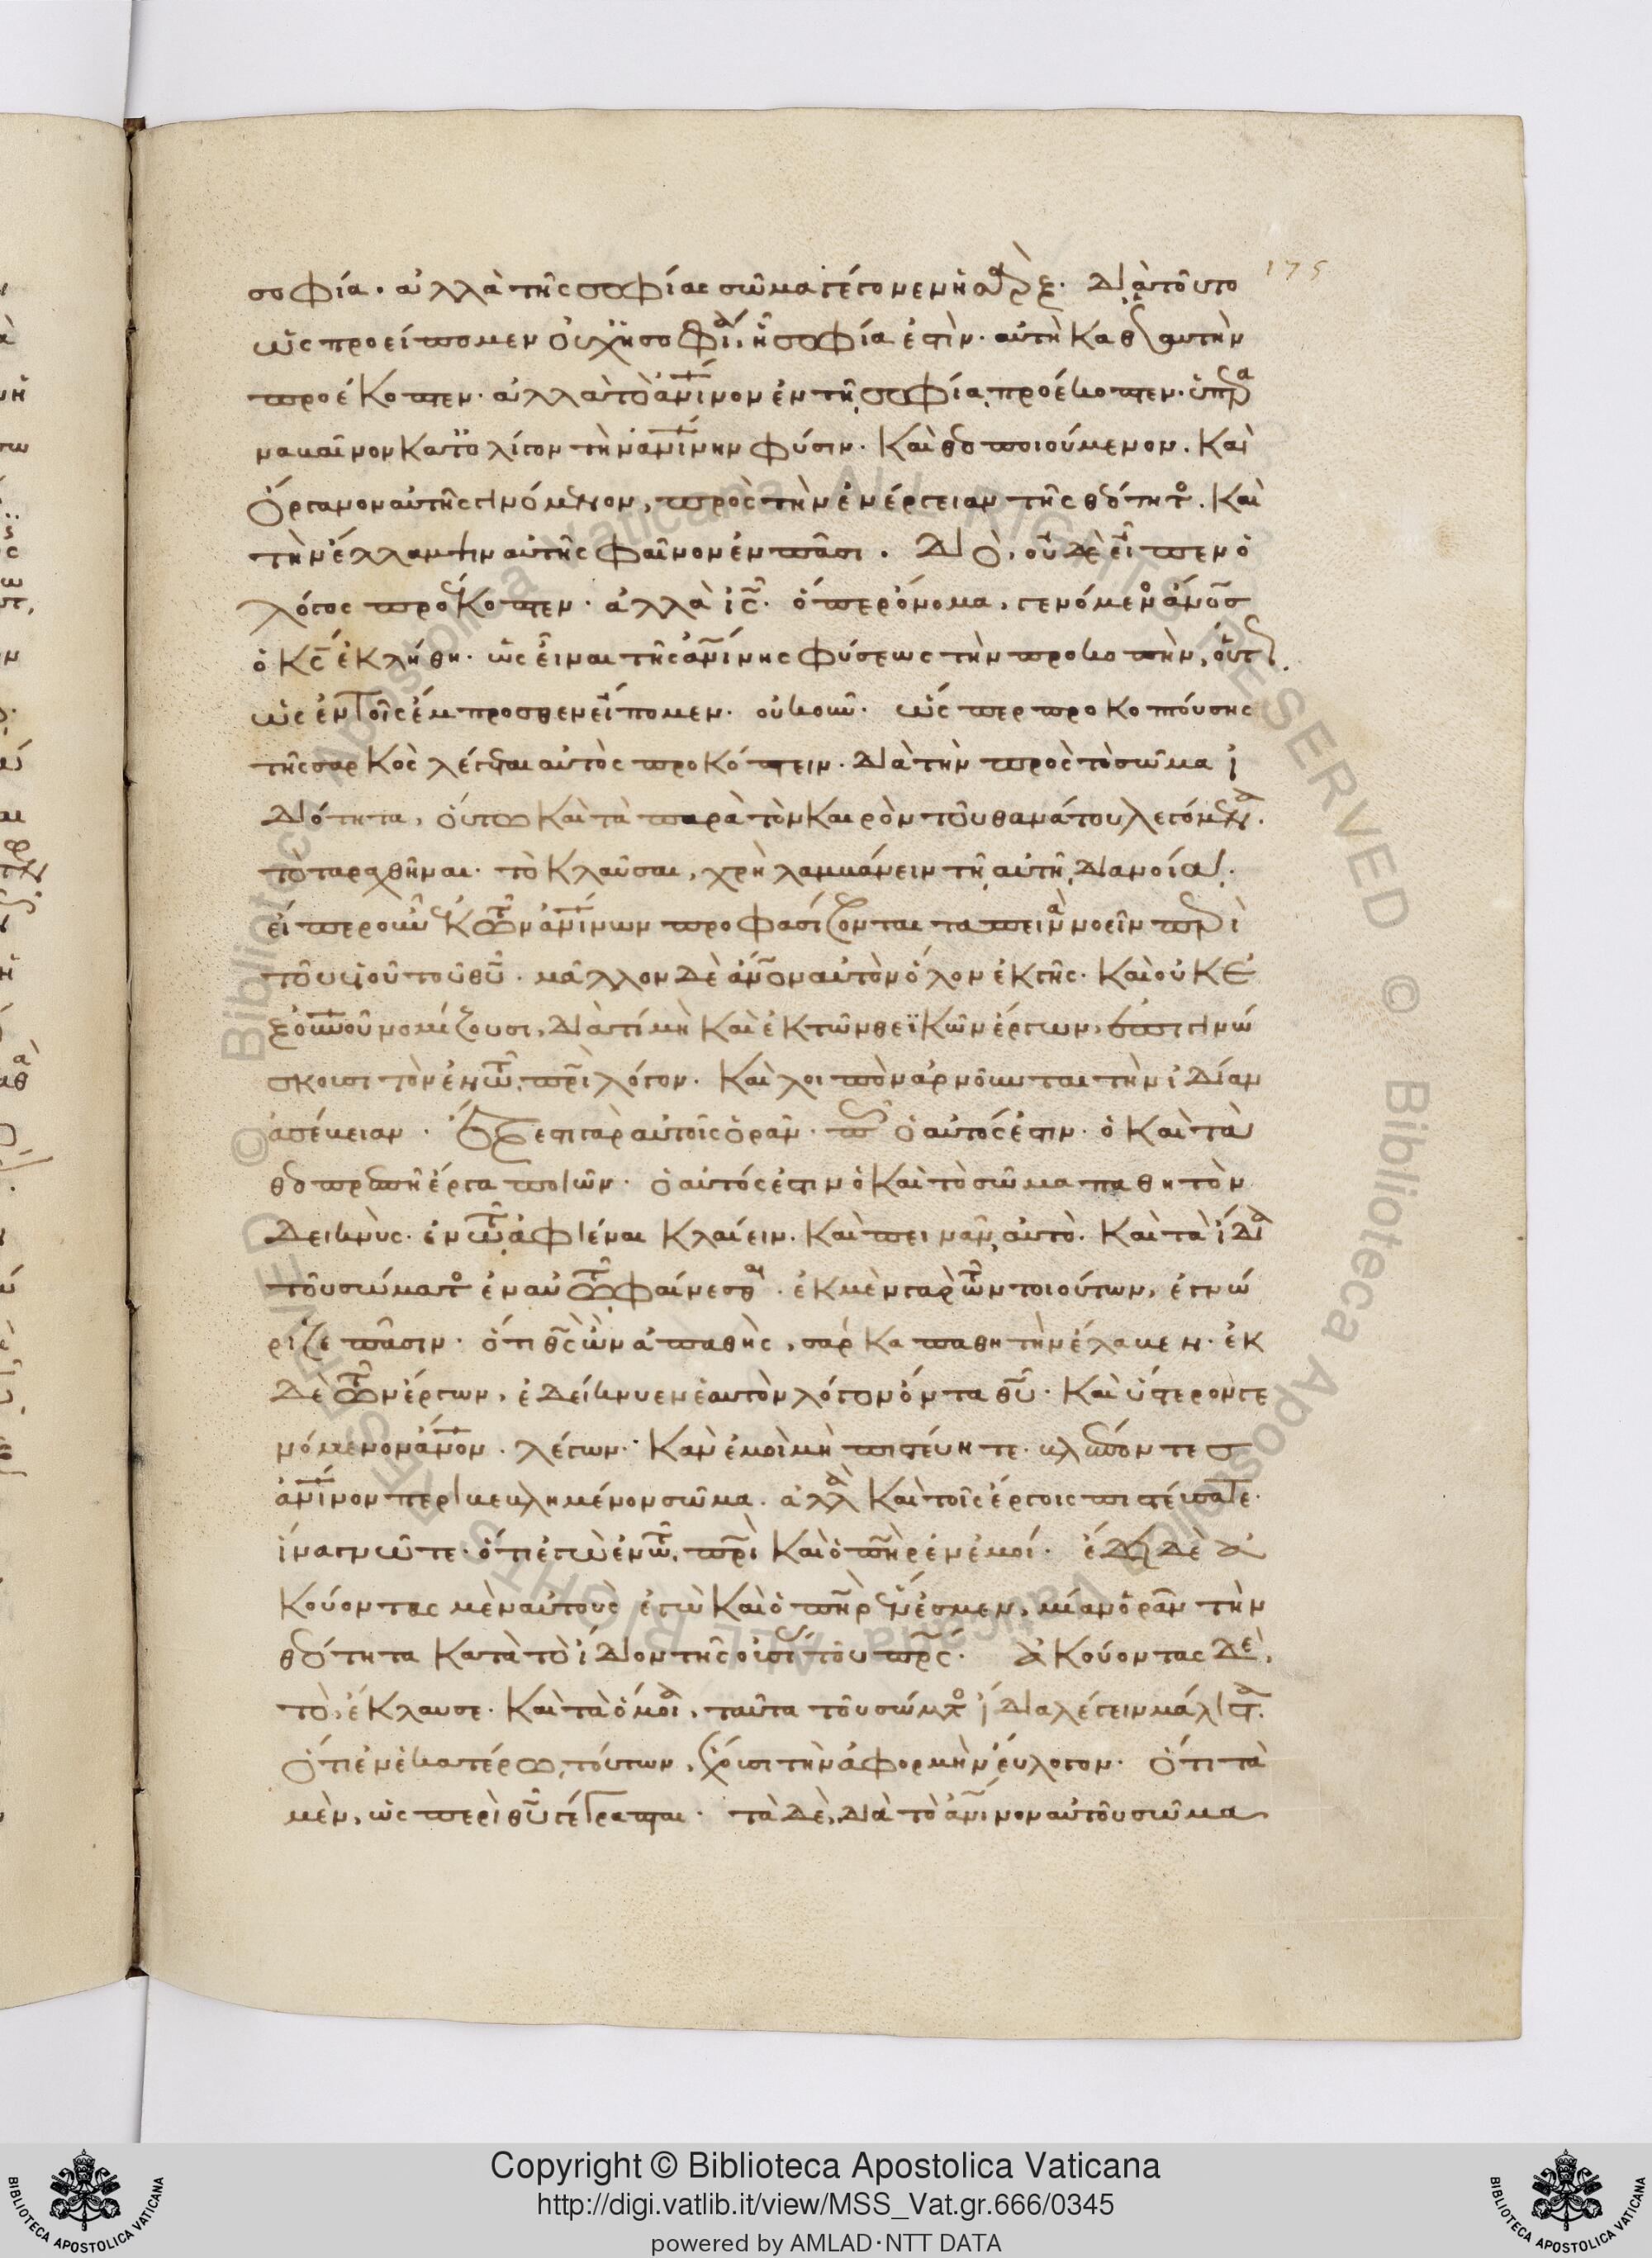 175
σοφία· ἀλλὰ τῆς σοφίας σῶμα γέγονεν ἡ σὰρξ· διὰ τοῦτο
ὡς προείπομεν οὐχ ἡ σοφία, ἧ σοφία ἐστὶν· αὐτὴ καθ' αυτὴν
προέκοπτεν· ἀλλὰ τὸ ἀνινον ἐν τῆ σοφία προέκοπτεν· ὑπερα
ναβαῖνον κατ' ὀλίγον τὴν ἀνινην φύσιν· καὶ θεοποιούμενον· καὶ
ὄργανον αὐτῆς γινόμενον, πρὸς τὴν ἐνέργειαν τῆς θεότητος· καὶ
τὴν ἔλλαμψιν αὐτῆς φαῖνον ἐν πᾶσι· διὸ, οὐδὲ εἶπεν ὁ
λόγος προέκοπτεν· ἀλλὰ ις· ὅπερ ὄνομα, γενόμενος ἄνος
ὁ κς ἐκλήθη· ὡς εἶναι τῆς ἀνίνης φύσεως τὴν προκοπὴν, οὕτως
ὡς ἐν τοῖς ἔμπροσθεν εἴπομεν· οὐκοῦν· ὥσπερ προκοπτούσης
τῆς σαρκὸς λέγεται αὐτὸς προκόπτειν· διὰ τὴν πρὸς τὸ σῶμα ἰ
διότητα, οὕτω καὶ τὰ παρὰ τὸν καιρὸν τοῦ θανάτου λεγόμενα·
τὸ ταραχθῆναι· τὸ κλαῦσαι, χρὴ λαμβάνειν τῆ αὐτῆ διανοία·
εἴπερ οὖν ἐκ τῶν ἀνίνων προφασίζονται ταπεινὰ νοεῖν περὶ
τοῦ υἱοῦ τοῦ θυ· μᾶλλον δὲ ἄνον αὐτὸν ὅλον ἐκ γῆς· καὶ οὐκ ἐ
ξ οὐνοῦ νομίζουσι, διὰ τί μὴ καὶ ἐκ τῶν θεϊκῶν ἔργων, ἐπιγινώ
σκουσι τὸν ἐν τῶ πρι λόγον· καὶ λοιπὸν ἀρνοῦνται τὴν ἰδίαν
ἀσέβειαν· ἔξεστι γὰρ αὐτοῖς ὁρᾶν· πῶς ὁ αὐτός ἐστιν· ὁ καὶ τὰ
θεοπρεπῆ ἔργα ποιῶν· ὁ αὐτός ἐστιν ὁ καὶ τὸ σῶμα παθητὸν
δεικνὺς· ἐν τῶ ἀφιέναι κλαίειν· καὶ πεινᾶν αὐτὸ· καὶ τὰ ἴδια
τοῦ σώματος ἐν αὐτῶ φαίνεσθαι· ἐκ μὲν γὰρ τῶν τοιούτων, ἐγνώ
ριζε πᾶσιν· ὅτι θς ὢν ἀπαθὴς, σάρκα παθητὴν ἔλαβεν· ἐκ
δὲ τῶν ἔργων, ἐδείκνυεν ἑαυτὸν λόγον ὄντα θυ· καὶ ὕστερον γε
νόμενον ἄνον· λέγων· κἂν ἐμοὶ μὴ πιστεύητε· βλέποντες
ἀνινον περιβεβλημένον σῶμα· ἀλλὰ καὶ τοῖς ἔργοις πιστεύσατε·
ἵνα γνῶτε· ὅτι ἐγὼ ἐν τῶ πρι καὶ ὁ πηρ ἐν ἐμοί· ἔδει δὲ ἀ
κούοντας μὲν αὐτοὺς ἐγὼ καὶ ὁ πηρ ἕν ἐσμεν, μίαν ὁρᾶν τὴν
θεότητα κατὰ τὸ ἴδιον τῆς οὐσίας τοῦ πρς· ἀκούοντας δὲ,
τὸ, ἔκλαυσε· καὶ τὰ ὅμοια, ταῦτα τοῦ σώματος ἴδια λέγειν μάλιστα·
ὅτι ἐν ἑκατέρω τούτων, ἔχουσι τὴν ἀφορμὴν εὔλογον· ὅτι τὰ
μὲν, ὡς περὶ θυ γέγραπται· τὰ δὲ, διὰ τὸ ἀνινον αὐτοῦ σῶμα
Copyright © Biblioteca Apostolica Vaticana
http://digi.vatlib.it/view/MSS_Vat.gr.666/0345
powered by AMLAD·NTT DATA